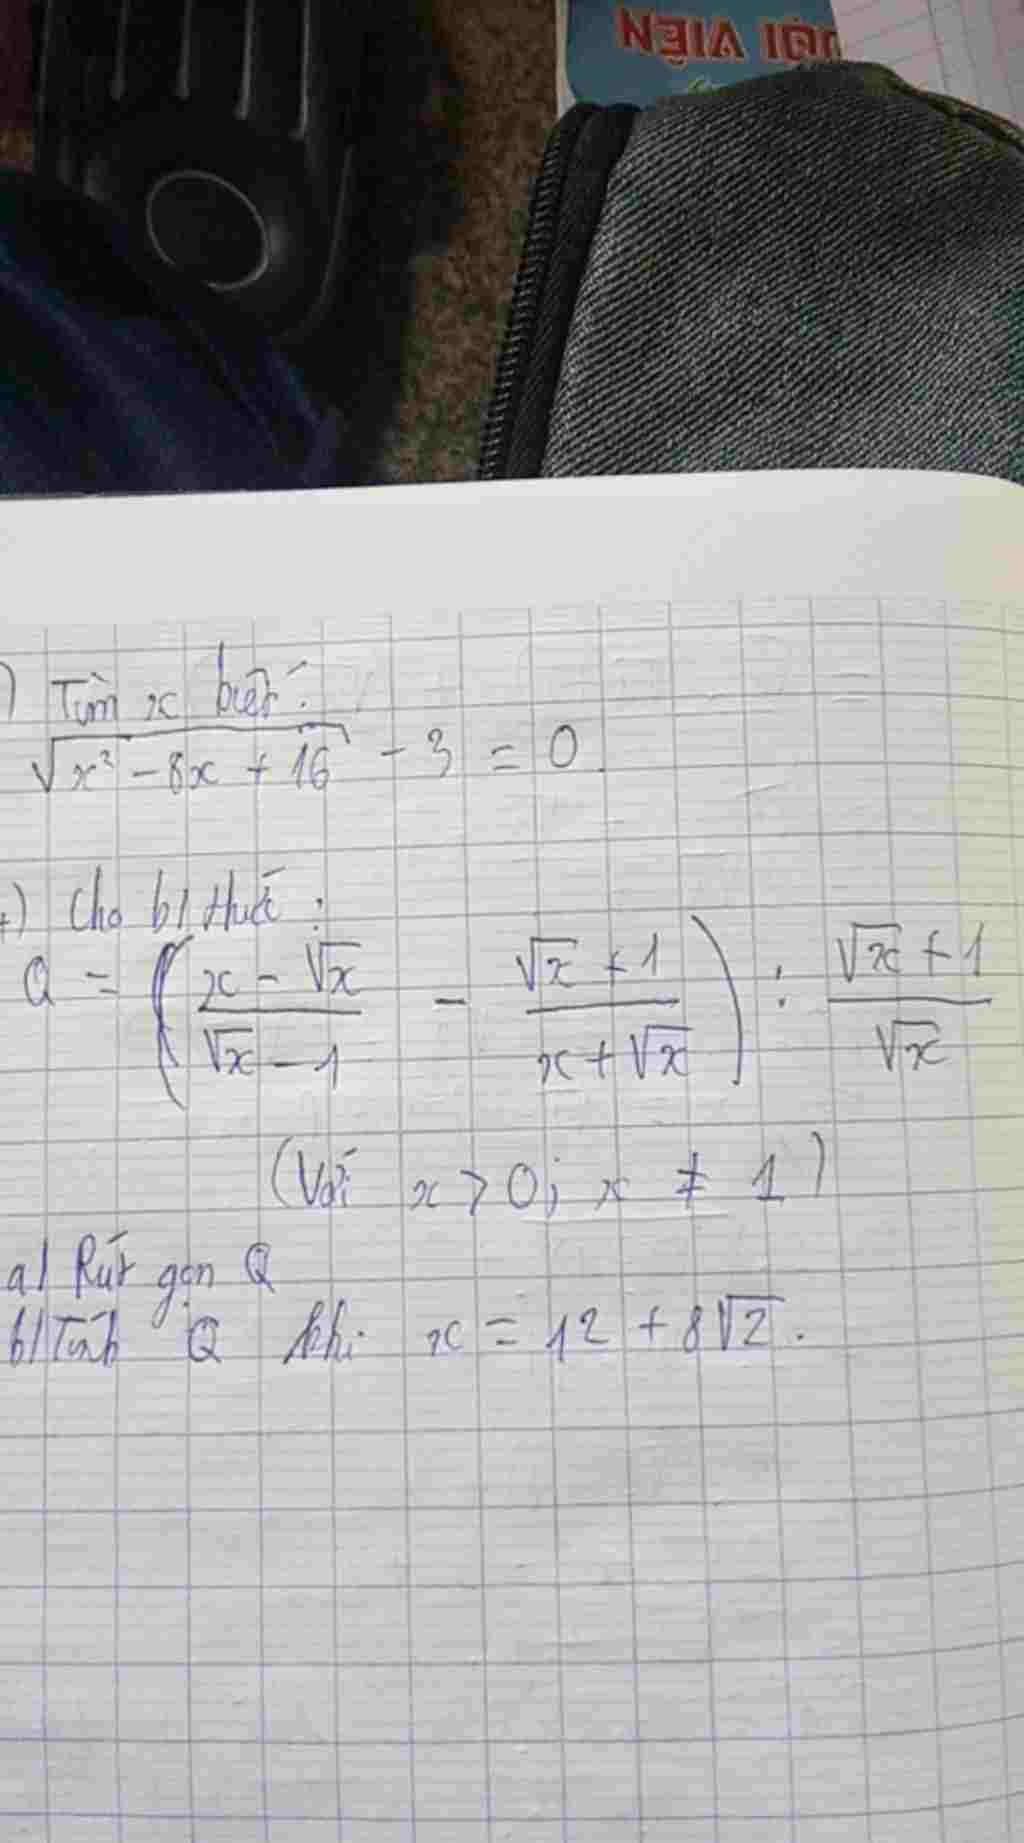 ƯỢI VIỆN
) Tìm x biết:
√(x² - 8x + 16) - 3 = 0
4) Cho b/ thức:
Q = ((x - √x)/(√x - 1) - (√x + 1)/(x + √x)) : (√x + 1)/√x
(Với x > 0; x ≠ 1)
a/ Rút gọn Q
b/ Tính Q khi x = 12 + 8√2.